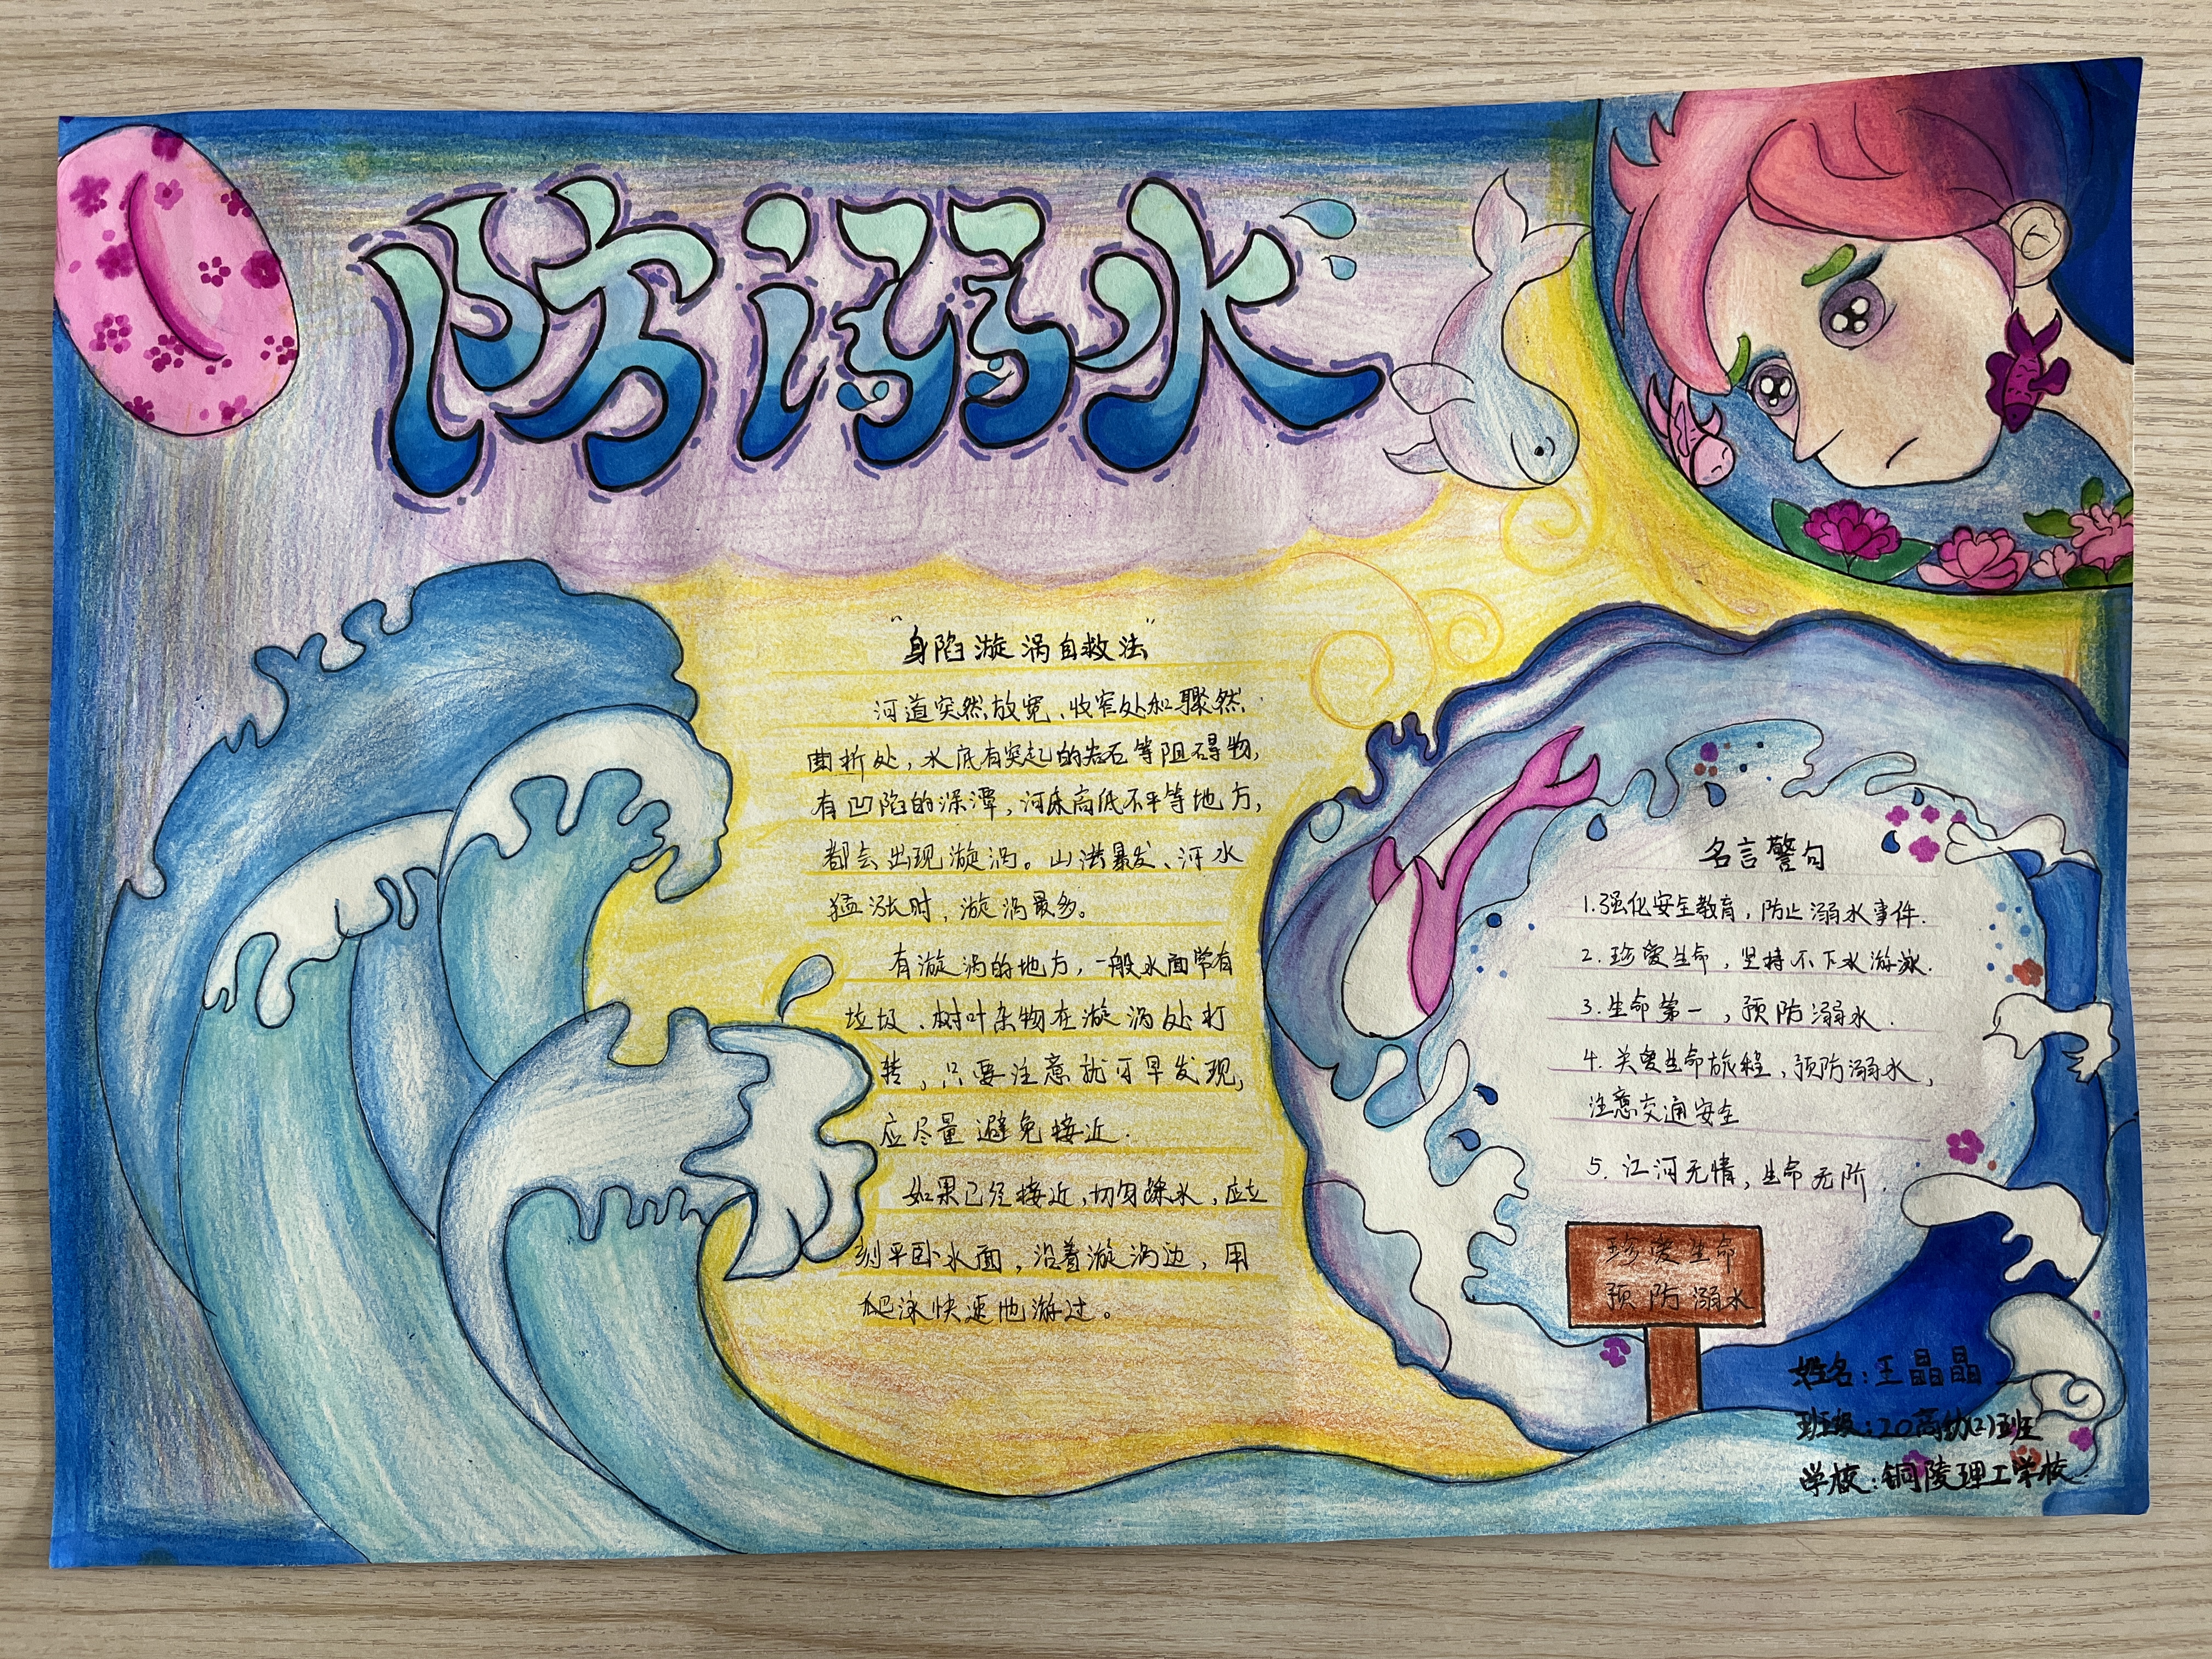 防溺水
"身陷漩涡自救法"
河道突然放宽、收窄处和骤然
曲折处，水底有突起的岩石等阻碍物，
有凹陷的深潭，河床高低不平等地方，
都会出现漩涡。山洪暴发、河水
猛涨时，漩涡最多。
有漩涡的地方，一般水面常有
垃圾、树叶杂物在漩涡处打
转，只要注意就可早发现，
应尽量避免接近.
如果已经接近，切勿踩水，应立
刻平卧水面，沿着漩涡边，用
爬泳快速地游过。
名言警句
1.强化安全教育，防止溺水事件.
2.珍爱生命，坚持不下水游泳.
3.生命第一，预防溺水.
4.关爱生命旅程，预防溺水，
注意交通安全
5.江河无情，生命无阶.
珍爱生命
预防溺水
姓名：王晶晶
班级：20高幼(2)班
学校：铜陵理工学校